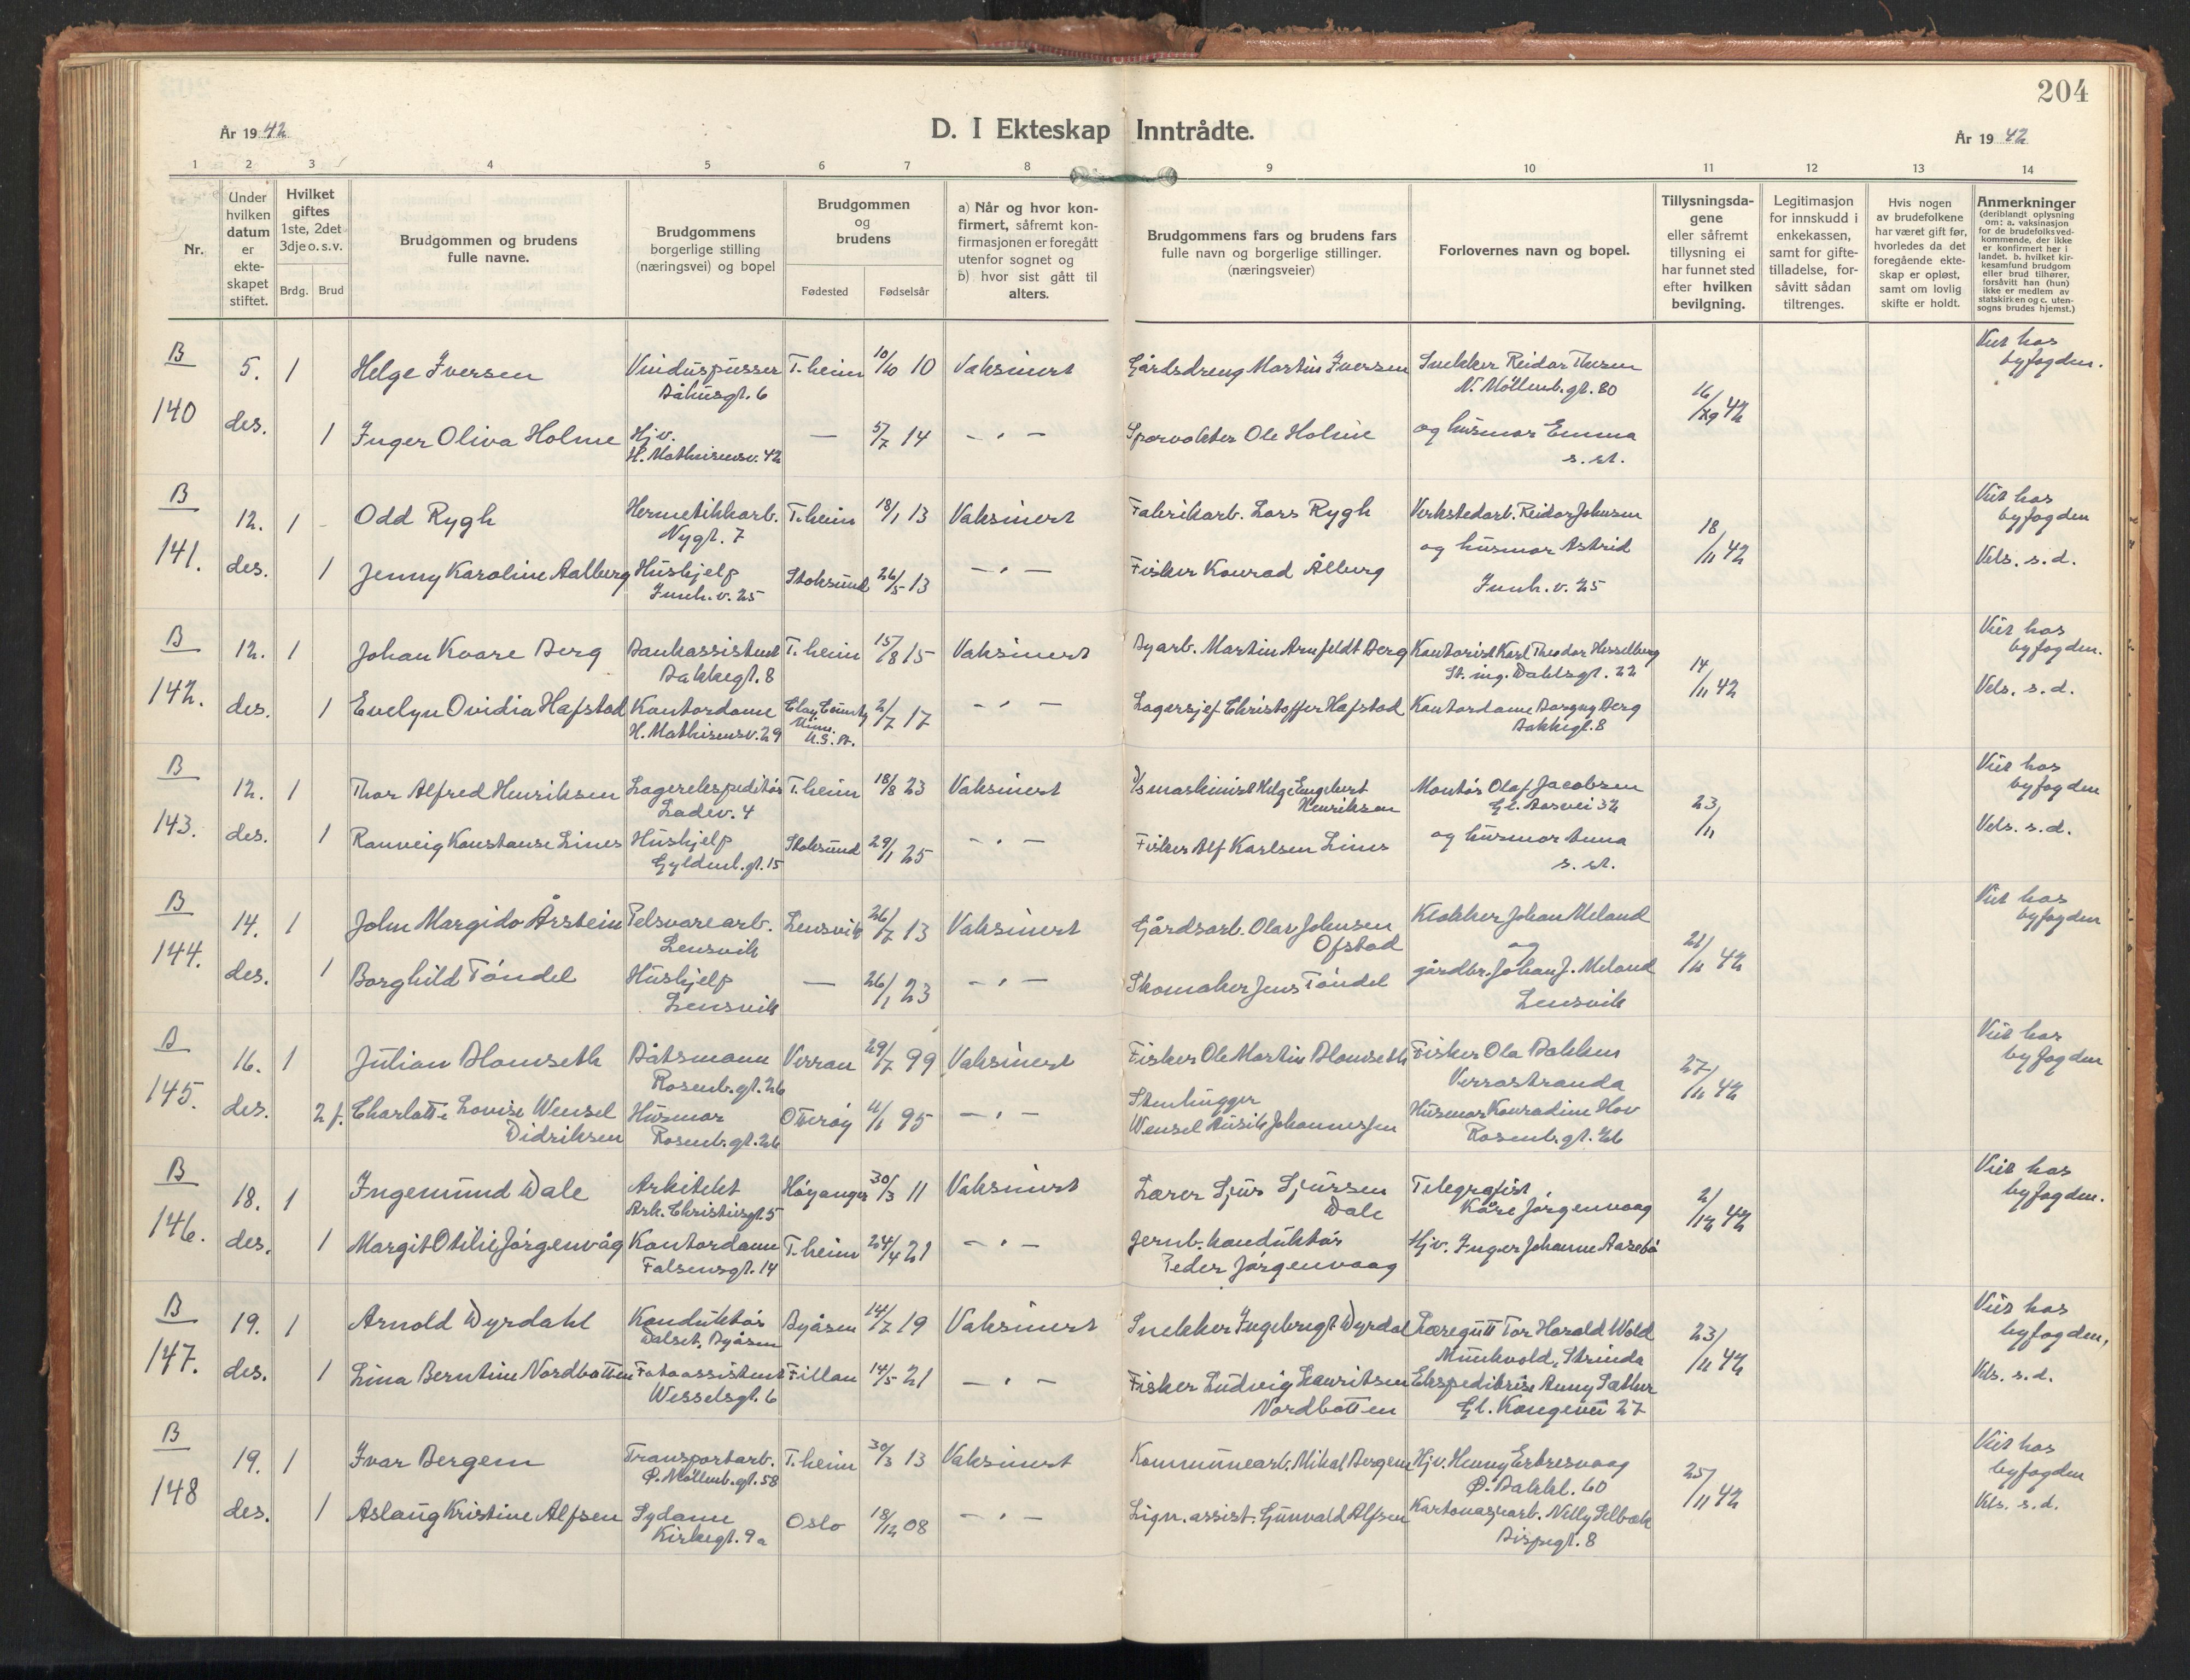 204
År 1942
D. I Ekteskap Inntrådte.
År 1942
1 2 3 4 5 6 7 8 9 10 11 12 13 14
Nr.
Under hvilken datum er ekte-skapet stiftet.
Hvilket giftes 1ste, 2det 3dje o. s. v.
Brdg. Brud
Brudgommen og brudens fulle navne.
Brudgommens borgerlige stilling (næringsvei) og bopel
Brudgommen og brudens
Fødested Fødselsår
a) Når og hvor kon-firmert, såfremt kon-firmasjonen er foregått utenfor sognet og
b) hvor sist gått til alters.
Brudgommens fars og brudens fars fulle navn og borgerlige stillinger. (næringsveier)
Forlovernes navn og bopel.
Tillysningsda-gene eller såfremt tillysning ei har funnet sted efter hvilken bevilgning.
Legitimasjon for innskudd i enkekassen, samt for gifte-tilladelse, for-såvitt sådan tiltrenges.
Hvis nogen av brudefolkene har været gift før, hvorledes da det foregående ekte-skap er opløst, samt om lovlig skifte er holdt.
Anmerkninger (deriblandt oplysning om: a. vaksinasjon for de brudefolks ved-kommende, der ikke er konfirmert her i landet. b. hvilket kir-kesamfund brudgom eller brud tilhører, forsåvitt han (hun) ikke er medlem av statskirken og c. uten-sogns brudes hjemst.)
B 5. 1 Helge Iversen Vinduspusser T.heim 10/10 10 Vaksinert Gårdsdreng Martin Iversen Snekker Reidar Thesen Viet hos
Båhusgt. 6 N. Möllenb. gt. 80 byfogden.
140 des. 1 Inger Oliva Holme Hjv. — 5/7 14 - " - Sporvokter Ole Holme og husmor Emma 42
H. Mathisensv. 42 s. st.
B 12. 1 Odd Rygh Hermetikkarb. T.heim 18/1 13 Vaksinert Fabrikarb. Lars Rygh Verkstedarb. Reidar Johnsen 18/11 42 Viet hos
Nygt. 7 og husmor Astrid byfogden
141. des. 1 Jenny Karoline Aalberg Hushjelp Stoksund 26/5 13 - " - Fisker Konrad Ålberg Innh. v. 25 Vels. s. d.
Innh. v. 25
B 12. 1 Johan Kvare Berg Bankassistent T.heim 15/8 15 Vaksinert Byarb. Martin Arnfeldt Berg Kontorist Karl Theodor Hesselberg 14/11 42 Viet hos
Bakkegt. 8 St. ing. Dahlsgt. 22 byfogden.
142. des. 1 Evelyn Ovidia Hafstad Kontordame Clay County 2/7 17 - " - Lagersjef Christoffer Hafstad Kontordame Borgny Berg Vels. s. d.
H. Mathisensv. 29 Minn. U.S.A. Bakkegt. 8
B 12. 1 Thor Alfred Henriksen Lagerekspeditör T.heim 18/8 23 Vaksinert D/s maskinist Helge Engebert Montör Olaf Jacobsen 23/11 Viet hos
Ladev. 4 Henriksen Gl. Aasvei 32 byfogden
143. des. 1 Ranveig Konstanse Lines Hushjelp Stoksund 29/1 25 - " - Fisker Alf Karlsen Lines og husmor Anna Vels. s. d.
Gyldenl. gt. 15 s. st.
B 14. 1 John Margido Årstein Pelsvarearb. Lensvik 26/7 13 Vaksinert Gårdsarb. Olav Johnsen Klokker Johan Meland Viet hos
Lensvik Ofstad og byfogden
144. des. 1 Borghild Töndel Hushjelp — 26/1 23 - " - Skomaker Jens Töndel gårdbr. Johan J. Meland 42
Lensvik Lensvik
B 16. 1 Julian Blomseth Båtsmann Verran 29/7 99 Vaksinert Fisker Ole Martin Blomseth Fisker Ola Bakken 27/11 42 Viet hos
Rosenb. gt. 26 Verrastranda byfogden
145. des. 2 f. Charlotte Lovise Wensel Husmor Otteröy 95 - " - Stenhugger Husmor Konradine Hov
Didriksen Rosenb. gt. 26 Wensel Johannessen Rosenb. gt. 26
B 18. 1 Ingemund Dale Arkitekt Höyanger 30/3 11 Vaksinert Lærer Sjur Sjursen Telegrafist 2/12 42 Viet hos
Ark. Christiesgt. 5 Dale Kåre Jörgenvaag byfogden.
146. des. 1 Margit Otilie Jörgenvåg Kontordame T.heim 24/4 21 - " - Jernb. konduktör Hjv. Inger Johanne Aasebö
Falsensgt. 14 Peder Jörgenvaag
B 19. 1 Arnold Dyrdahl Konduktör Byåsen 14/7 19 Vaksinert Snekker Ingebrigt Dyrdal Læregutt Tor Harald Wold 23/11 42 Viet hos
Dalset, Byåsen Munkvold, Strinda byfogden,
147. des. 1 Lina Berntine Nordbotten Fotoassistent Fillan 14/5 21 - " - Fisker Ludvig Lauritsen Ekspeditrise Anny Sæther Vels. s. d.
Wesselsgt. 6 Nordbotten Gl. Kongevei 27
B 19. 1 Ivar Bergem Transportarb. T.heim 30/3 13 Vaksinert Kommunearb. Mikal Bergem Hjv. Henny Erbresvaag 25/11 42 Viet hos
Ø. Möllenb. gt. 58 Ø. Bakkl. 60 byfogden
148 des. 1 Aslaug Kristine Alfsen Sydame Oslo 18/12 08 - " - Lign. assist. Gunvald Alfsen Kartonasjearb. Nelly Selbæk Vels. s. d.
Kirkegt. 9a Bispegt. 8